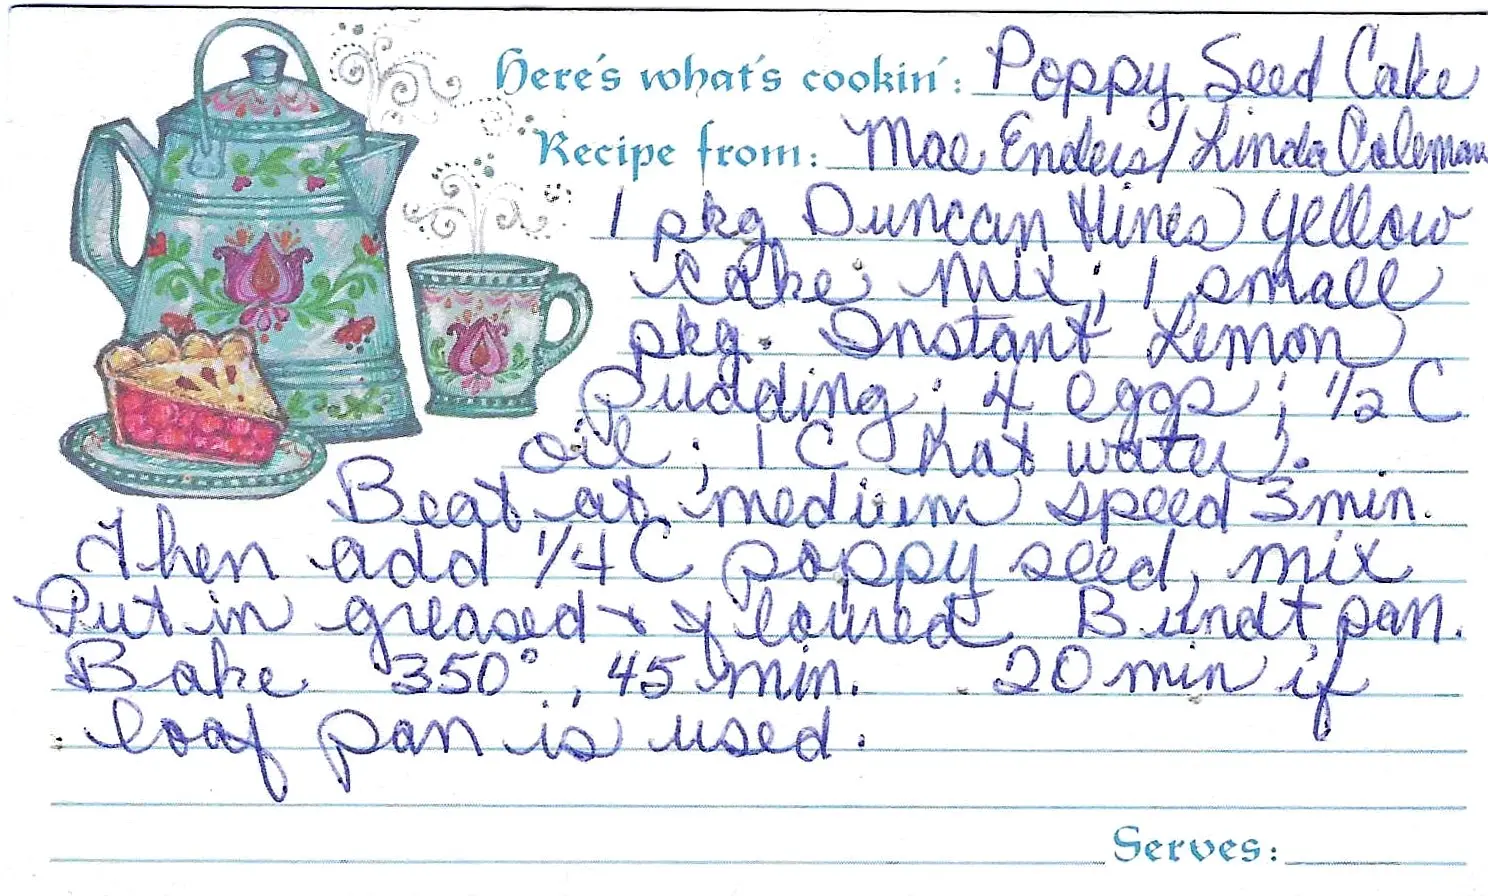 Here's what's cookin': Poppy Seed Cake
Recipe from: Mae Enders/Linda Coleman
1 pkg Duncan Hines Yellow
cake mix; 1 small
pkg. Instant Lemon
pudding; 4 eggs; 1/2 C
oil; 1 C hot water.
Beat at medium speed 3 min.
Then add 1/4 C poppy seed, mix
Put in greased & floured Bundt pan.
Bake 350°, 45 min. 20 min if
loaf pan is used.
Serves: